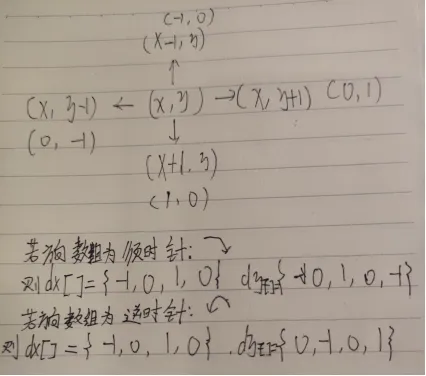 (-1, 0)
(x-1, y)
↑
(x, y-1) ← (x, y) → (x, y+1) (0, 1)
(0, -1)
↓
(x+1, y)
(1, 0)
若方向数组为顺时针:
则dx[]={-1, 0, 1, 0} dy[]={0, 1, 0, -1}
若方向数组为逆时针:
则dx[]={-1, 0, 1, 0}. dy[]={0, -1, 0, 1}